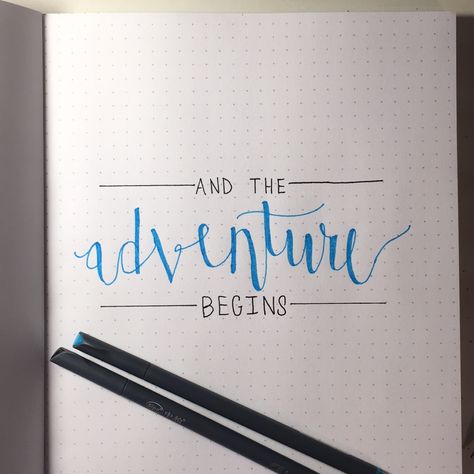 AND THE
adventure
BEGINS